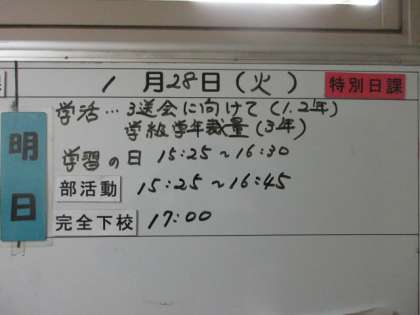 1月28日(火) 特別日課
明日
学活…3送会に向けて(1.2年)
学級学年裁量(3年)
学習の日 15:25~16:30
部活動 15:25~16:45
完全下校 17:00